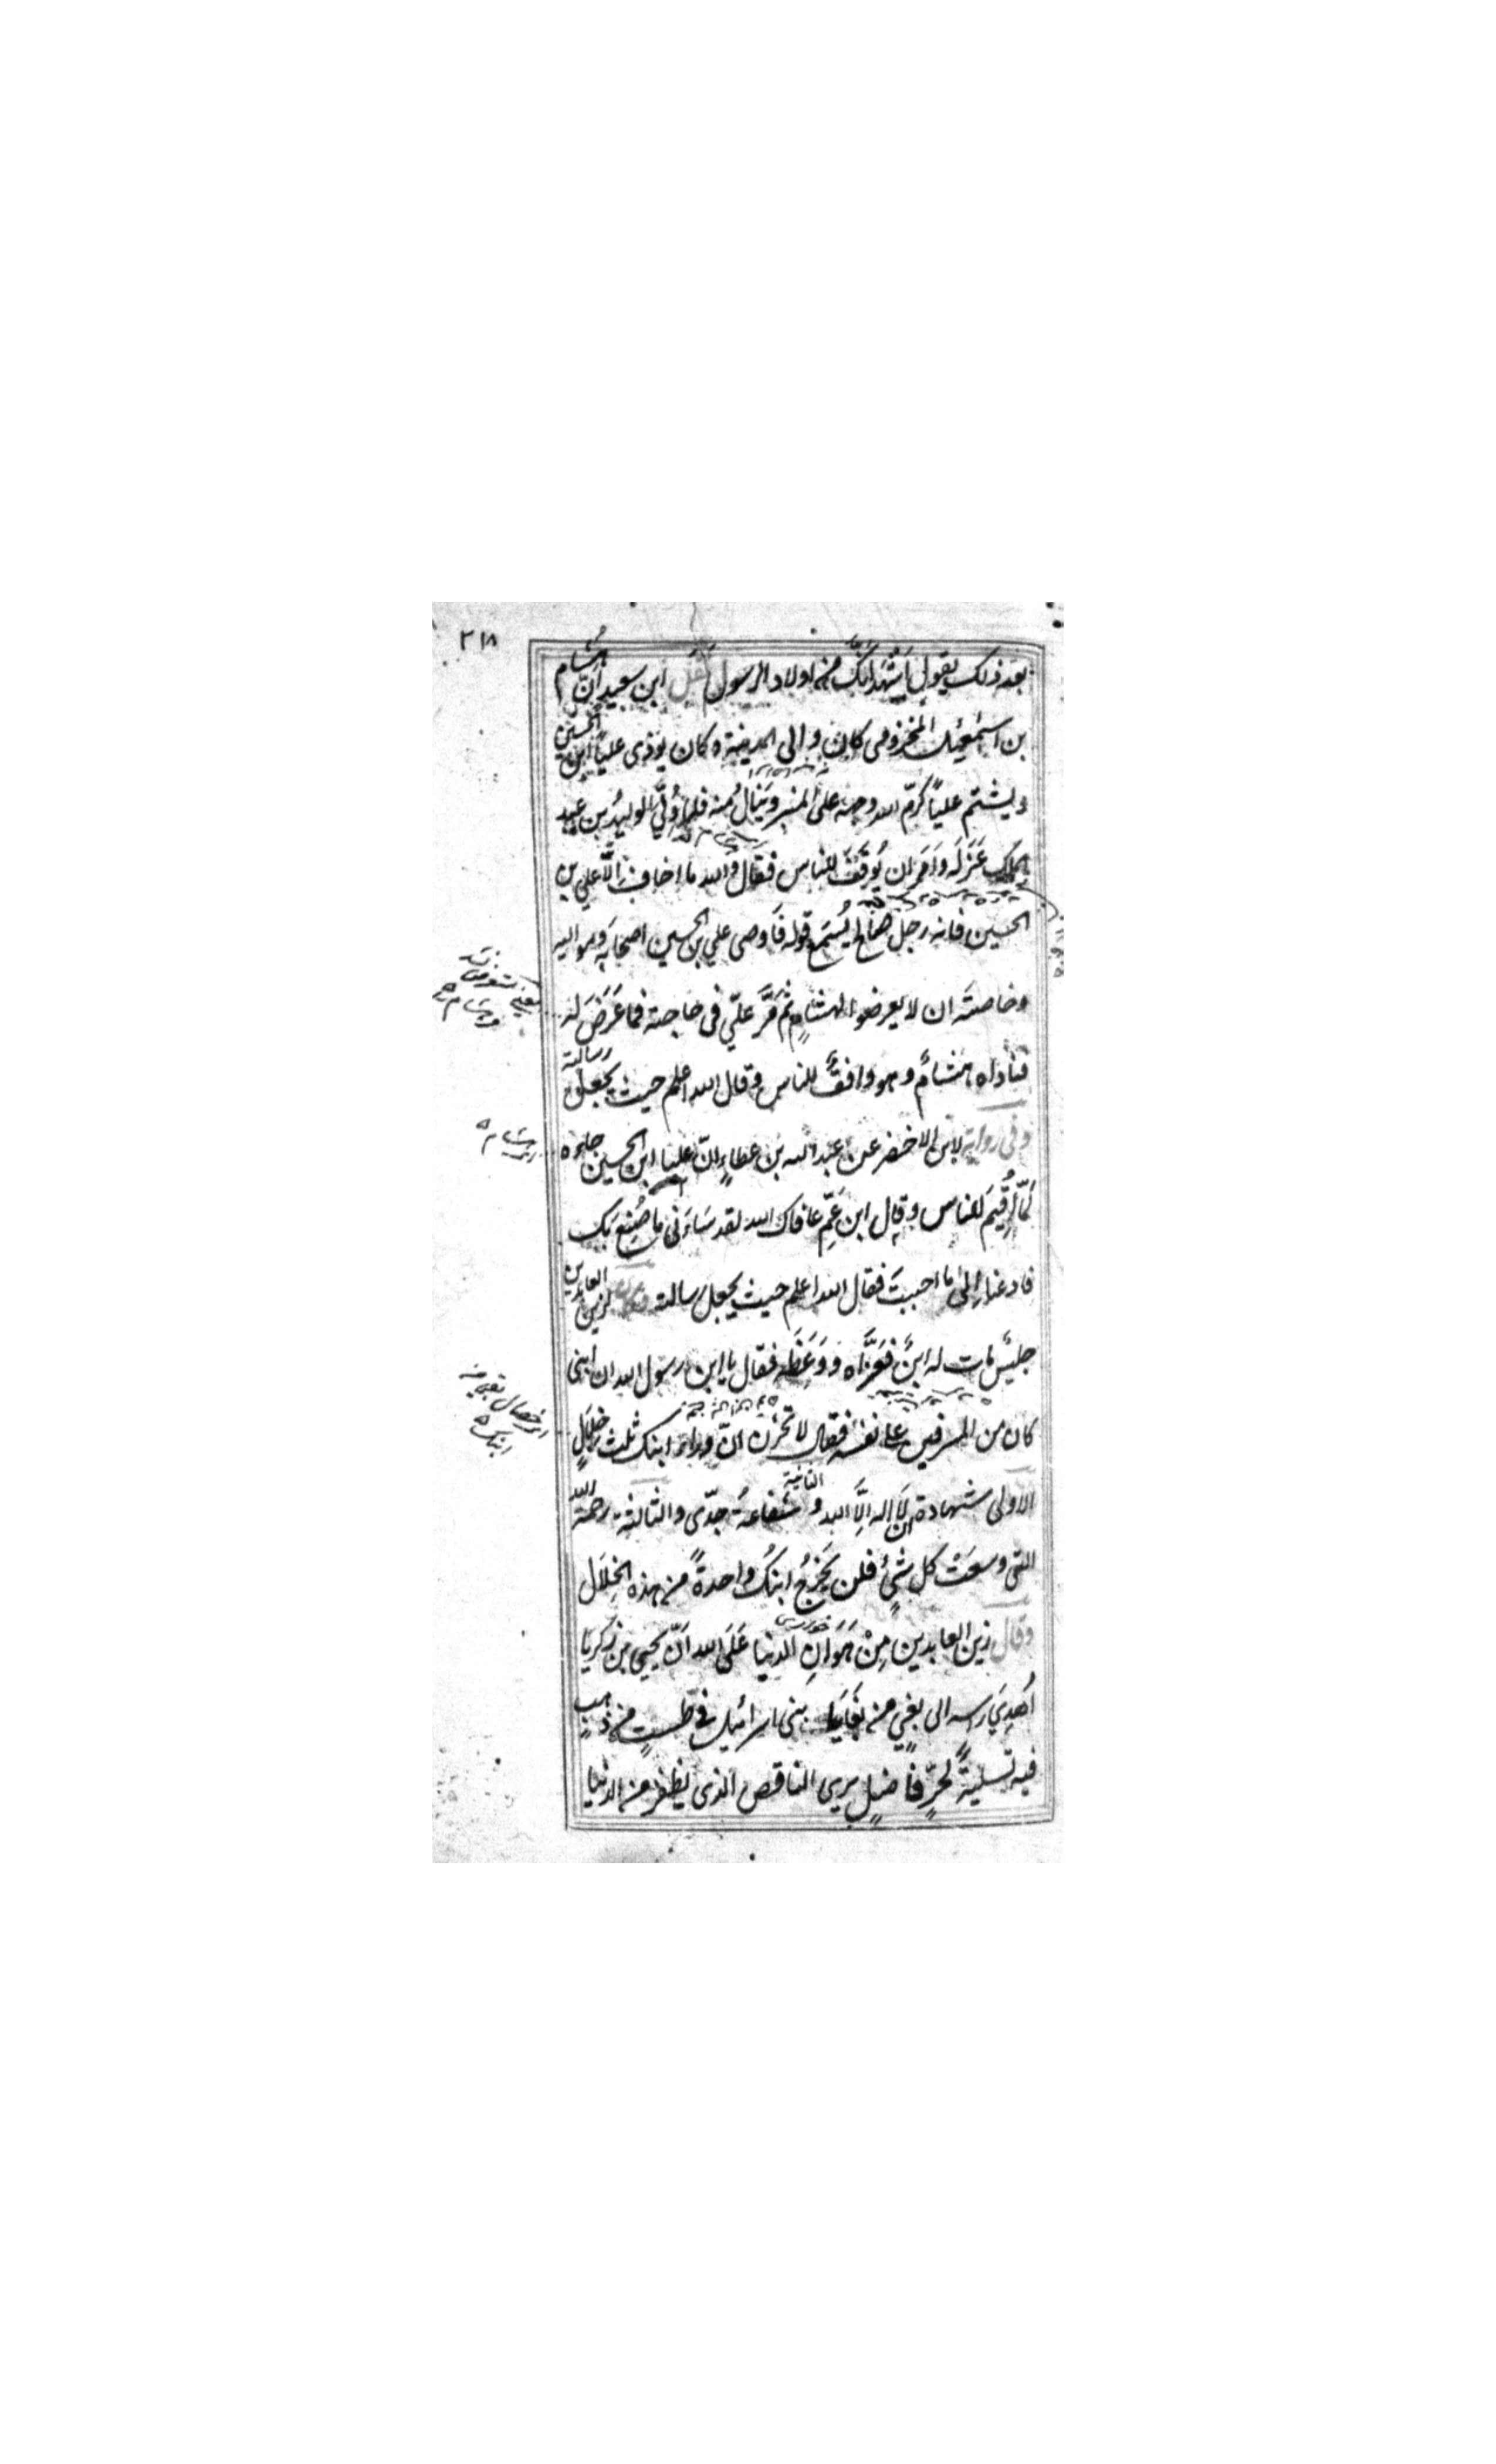 ٢١٨
بعد ذلك يقول أشهد أنك من اولاد الرسول نقل ابن سعيد أنّ هشام
بن اسمعيل المخزومى كان والى المدينة وكان يوذى علياً ابن الحسين
ويشتم علياً كرّم الله وجهه على المنبر وينالُ منه فلما وُلّي الوليدُ بن عبد
الملك عَزَلَه وَاَمَر ان يُوقَفَ للناس فقال والله ما اخاف اِلّا علي بن
الحسين فانه رجل صالح يُسمَع قوله فَاوصى علي بن الحسين اصحابه ومواليه
وخاصته ان لا يعرضوا لهشامٍ ثم مَرَّ عليّ فى حاجته فما عَرَضَ له
فناداه هشامٌ وهو واقفٌ للناس وقال الله اعلم حيث يجعل رسالته
وفى رواية لابن الاخضر عن عبد الله بن عطاءٍ انّ علياً ابن الحسين جاءه
لَمّا اُقِيمَ للناس وقال ابن عَمِّ عافاك الله لقد سَاءَنى ما صُنِعَ بك
فادعنا اِلى ما احببتَ فقال الله اعلم حيث يجعل رسالته وكان لزين العابدين
جليسٌ مات له ابنٌ فعَزّاه ووَعَظَه فقال يا ابن رسول الله ان ابنى
كان من المسرفين على نفسه فقال لا تحزن انّ وراء ابنك ثلث خِلالٍ
الاولى شهادة ان لَا اله اِلَّا الله والثانية شفاعةُ جدّى والثالثة رحمة الله
التى وسعَتْ كل شئٍ فلن يَخرُجُ ابنُكَ واحدةً من هذه الخِلَال
وقال زين العابدين مِنْ هَوَانِ الدنيا عَلَى الله اَنّ يحيى بن زكريا
اُهدِيَ راسه الى بغيٍ من بَغَايَا بنى اسرائيل فى طَسْتٍ من ذهبٍ
فيه تسليةً لحرٍّ فاضلٍ يرى الناقص الذى يظفر من الدنيا